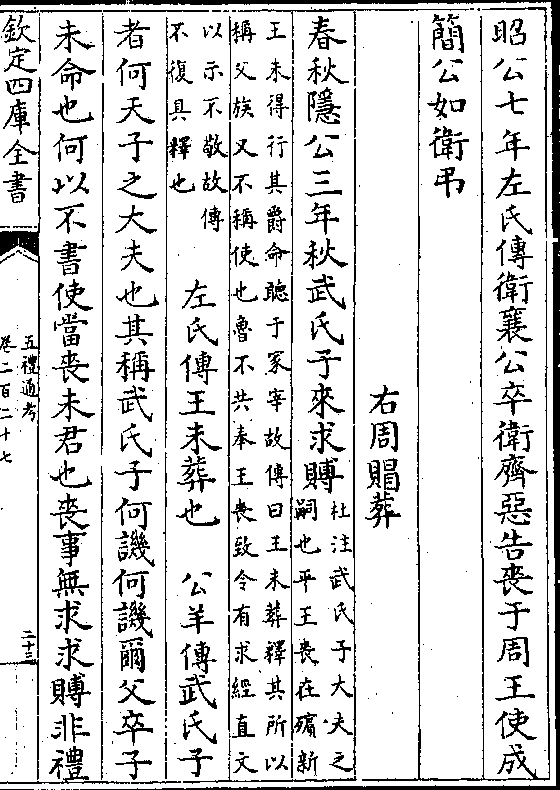 昭公七年左氏傳衛襄公卒衛齊惡告喪于周王使成
簡公如衛弔
右周賵葬
春秋隱公三年秋武氏子來求賻杜注武氏子大夫之
嗣也平王喪在殯新
王未得行其爵命聽于冢宰故傳曰王未葬釋其所以
稱父族又不稱使也魯不共奉王喪致令有求經直文
以示不敬故傳
不復具釋也
左氏傳王未葬也　公羊傳武氏子
者何天子之大夫也其稱武氏子何譏何譏爾父卒子
未命也何以不書使當喪未君也喪事無求求賻非禮
欽定四庫全書
五禮通考
卷二百二十七
二十三